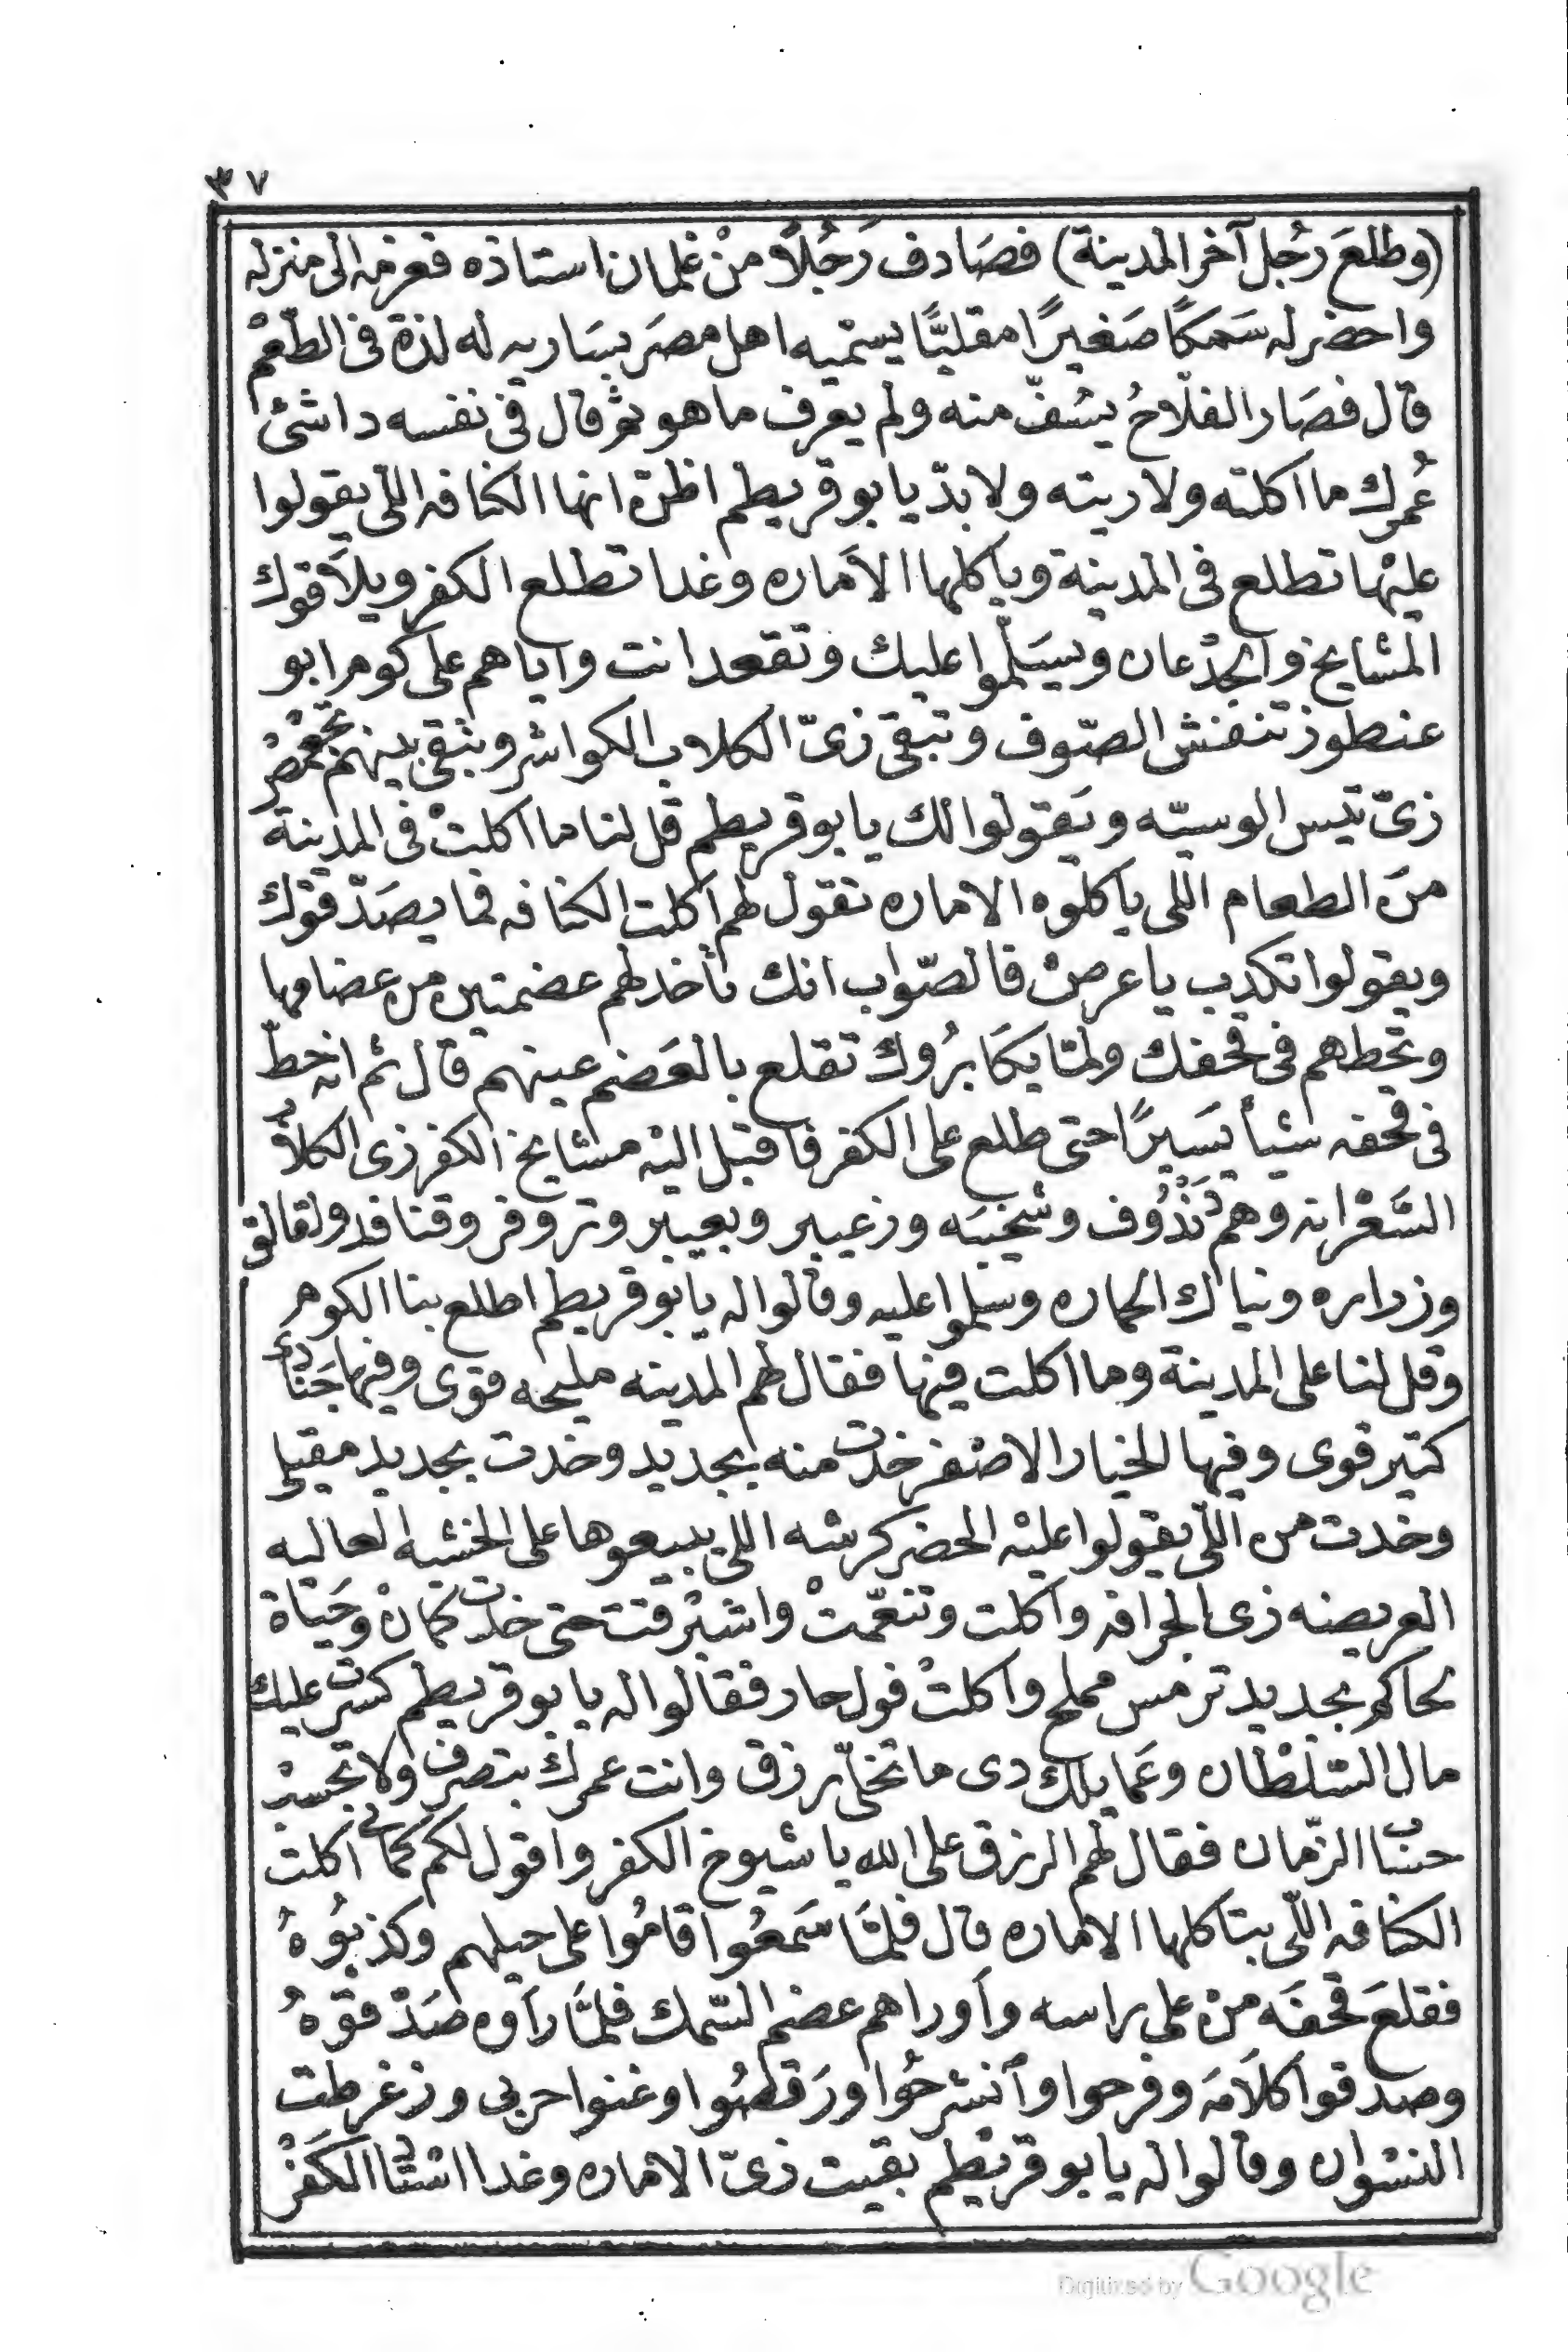 ٣٧
(وطلعَ رجُل آخر المدينة) فصَادف رَجُلاً منْ غلمان استاذه فعزمه الى منزله
واحضر له سَمكًا صَغيرًا مقليًّا يسمّيه اهل مصرَ بسَاريه له لذة فى الطّعْم
قال فصَار الفلّاحُ يسُفّ منه ولم يعرف ما هو ثم قال فى نفسه دا شئ
عُمرك ما اكلته ولا ريته ولا بدّ يا بو قريطم اظنّ انها الكنافه اللّى يقولوا
عليْها تطلع فى المدينة وياكلها الاَماره وغدا تطلع الكفر ويلاَقوك
المشايخ والجدْعان ويسَلّموا عليك وتقعد انت واياهم على كوم ابو
عنطوز تنفش الصّوف وتبقى زىّ الكلاب الكواشر وتبقى بينهم
زىّ تيس الوسيّه ويَقولوا لك يا بو قريطم قل لنا ما اكلتْ فى المدينة
منَ الطعام اللى ياكلوه الاماره تقول لهم اكلت الكنافه فما يصَدّقوْك
ويقولوا تكدب يا عرصْ فالصّواب انك تأخد لهم عضمتين من عضامها
وتحطهم فى قحفك ولمّا يكَابرُوك تقلع بالعَضم عينهم قال ثم انه حطّ
فى قحفه شيأ يَسَيرًا حتى طلع على الكفر فاقبل اليْه مشايخ الكفر زى الكلاَب
السَّعْرانه وهم دَنْدُوف وشخيَبَه وزعيبر وبعيبر وتروفر وقنافد ولقالق
وزراره ونياك الحماره وسلموا عليه وقالوا له يا بو قريطم اطلع بنا الكوم
وقل لنا على المدينة وما اكلت فيْها فقال لهم المدينه مليحه قوى وفيها جَنادى
كتير قوى وفيها الخيار الاصْفر خدت منه بجديد وخدت بجديد مقيلى
وخدت من اللّى يقولوا عليْه الحضر كرشه اللى يبيعوها على الخشبه العاليه
العريضه زى الجرافه واكلت وتنعّمتْ واشبرقت حتى خدت كمانْ وحَيَاة
لحاكم بجديد ترمس مملح واكلتْ فول حار فقالوا له يا بو قريطم كسرت عليك
مال السّلْطان وعَمايلك دى ما تخلّى رزق وانت عمركْ بتصرف ولا تحسبْ
حسَاب الزّمان فقال لهم الرزق على الله يا شيوخ الكفر واقول لكم كمانى اكلت
الكنافه اللّى بتاكلها الاماره قال فلمَّا سَمعُوا قامُوا على حيلهم وكذبوُهُ
فقلعَ قحفَه منْ على راسه وأوراهم عضم السّمك فلمَّا راَوه صَدْقوْهُ
وصدقوا كلاَمَه وفرحوا وأنشرحُوا ورَقصُوا وغنوا حربى وزغرطت
النسْوان وقالوا له يا بو قريْطم بقيت زىّ الاماره وغدا اسْتَاد الكَفْر
Digitized by Google